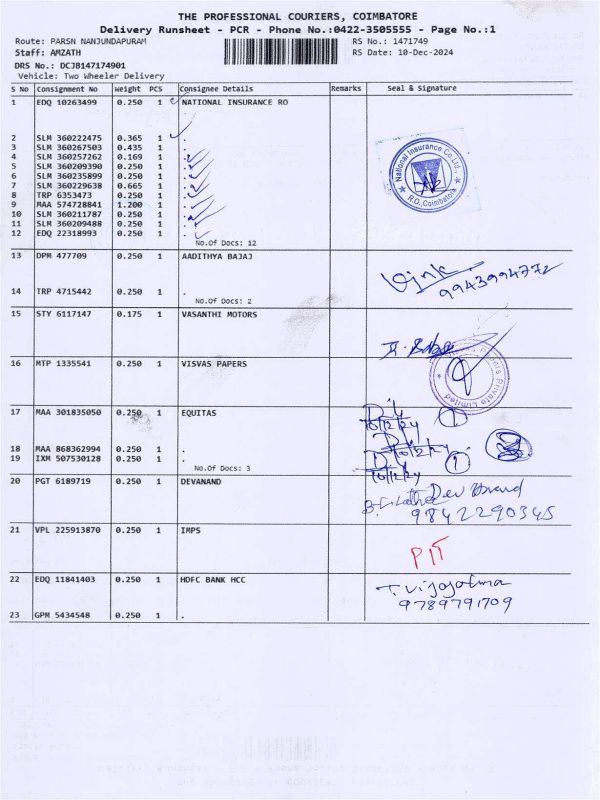 THE PROFESSIONAL COURIERS, COIMBATORE
Delivery Runsheet - PCR - Phone No.:0422-3505555 - Page No.:1
Route: PARSN NANJUNDAPURAM RS No.: 1471749
Staff: AMZATH RS Date: 10-Dec-2024
DRS No.: DCJB147174901
Vehicle: Two Wheeler Delivery
S No Consignment No Weight PCS Consignee Details Remarks Seal & Signature
1 EDQ 10263499 0.250 1 NATIONAL INSURANCE RO
2 SLM 360222475 0.365 1 .
3 SLM 360267503 0.435 1 .
4 SLM 360257262 0.169 1 .
5 SLM 360209390 0.250 1 .
6 SLM 360235899 0.250 1 .
7 SLM 360229638 0.665 1 .
8 TRP 6353473 0.250 1 .
9 MAA 574728841 1.200 1 .
10 SLM 360211787 0.250 1 .
11 SLM 360209488 0.250 1 .
12 EDQ 22318993 0.250 1 .
No.Of Docs: 12
National Insurance Co.Ltd.,
R.O., Coimbatore
13 DPM 477709 0.250 1 AADITHYA BAJAJ
9943994772
14 TRP 4715442 0.250 1 .
No.Of Docs: 2
15 STY 6117147 0.175 1 VASANTHI MOTORS
16 MTP 1335541 0.250 1 VISVAS PAPERS
Papers Private Limited
17 MAA 301835050 0.250 1 EQUITAS
10/12/24 1
18 MAA 868362994 0.250 1 .
10/12/24
19 IXM 507530128 0.250 1 .
10/12/24 1
No.Of Docs: 3
20 PGT 6189719 0.250 1 DEVANAND
Dev Anand
9842290345
21 VPL 225913870 0.250 1 IMPS
PIT
22 EDQ 11841403 0.250 1 HDFC BANK HCC
9789791709
23 GPM 5434548 0.250 1 .